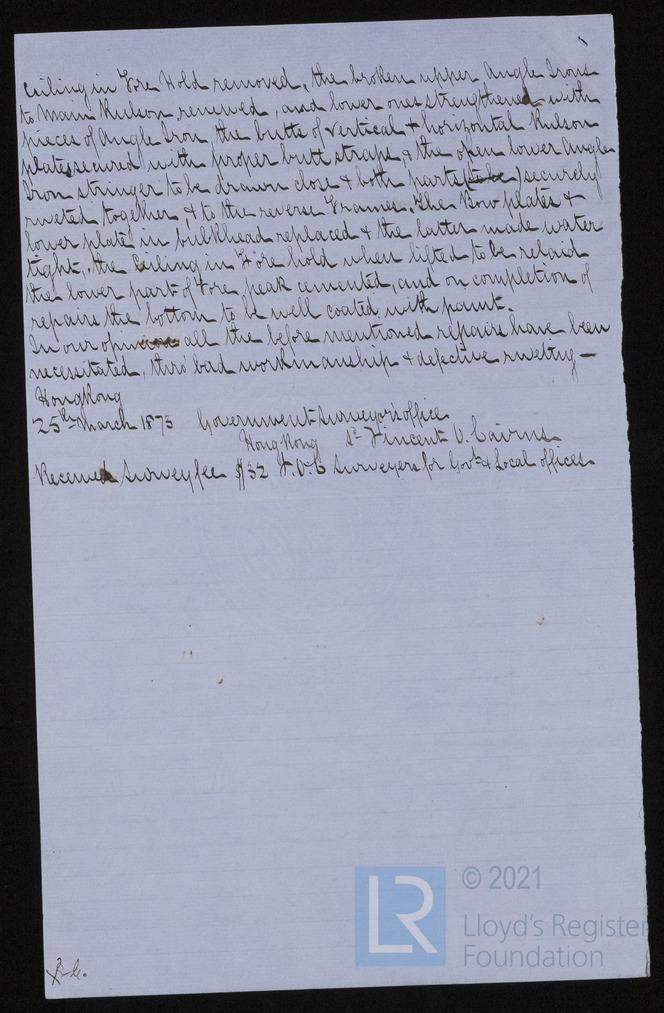 ceiling in Fore Hold removed, the broken upper Angle Irons
to Main Kulson renewed, and lower ones strengthened with
pieces of Angle Iron, the butts of vertical & horizontal Kulson
plates secured with proper butt straps & the open lower Angle
Iron stringer to be drawn close & both parts (to be) securely
riveted together, & to the reverse Frames. The Bow plates &
lower plate in bulkhead replaced & the latter made water
tight, the Ceiling in Fore hold when lifted to be relaid
the lower part of Fore peak cemented, and on completion of
repairs the bottom to be well coated with paint.
In our opinion all the before mentioned repairs have been
necessitated, thro' bad workmanship & defective riveting —
HongKong
25th March 1873 Government Surveyor's office
HongKong sd Vincent V. Cairns
Received Survey fee $32 V.C Surveyors for Govt & Local offices
LR
© 2021
Lloyd's Register
Foundation